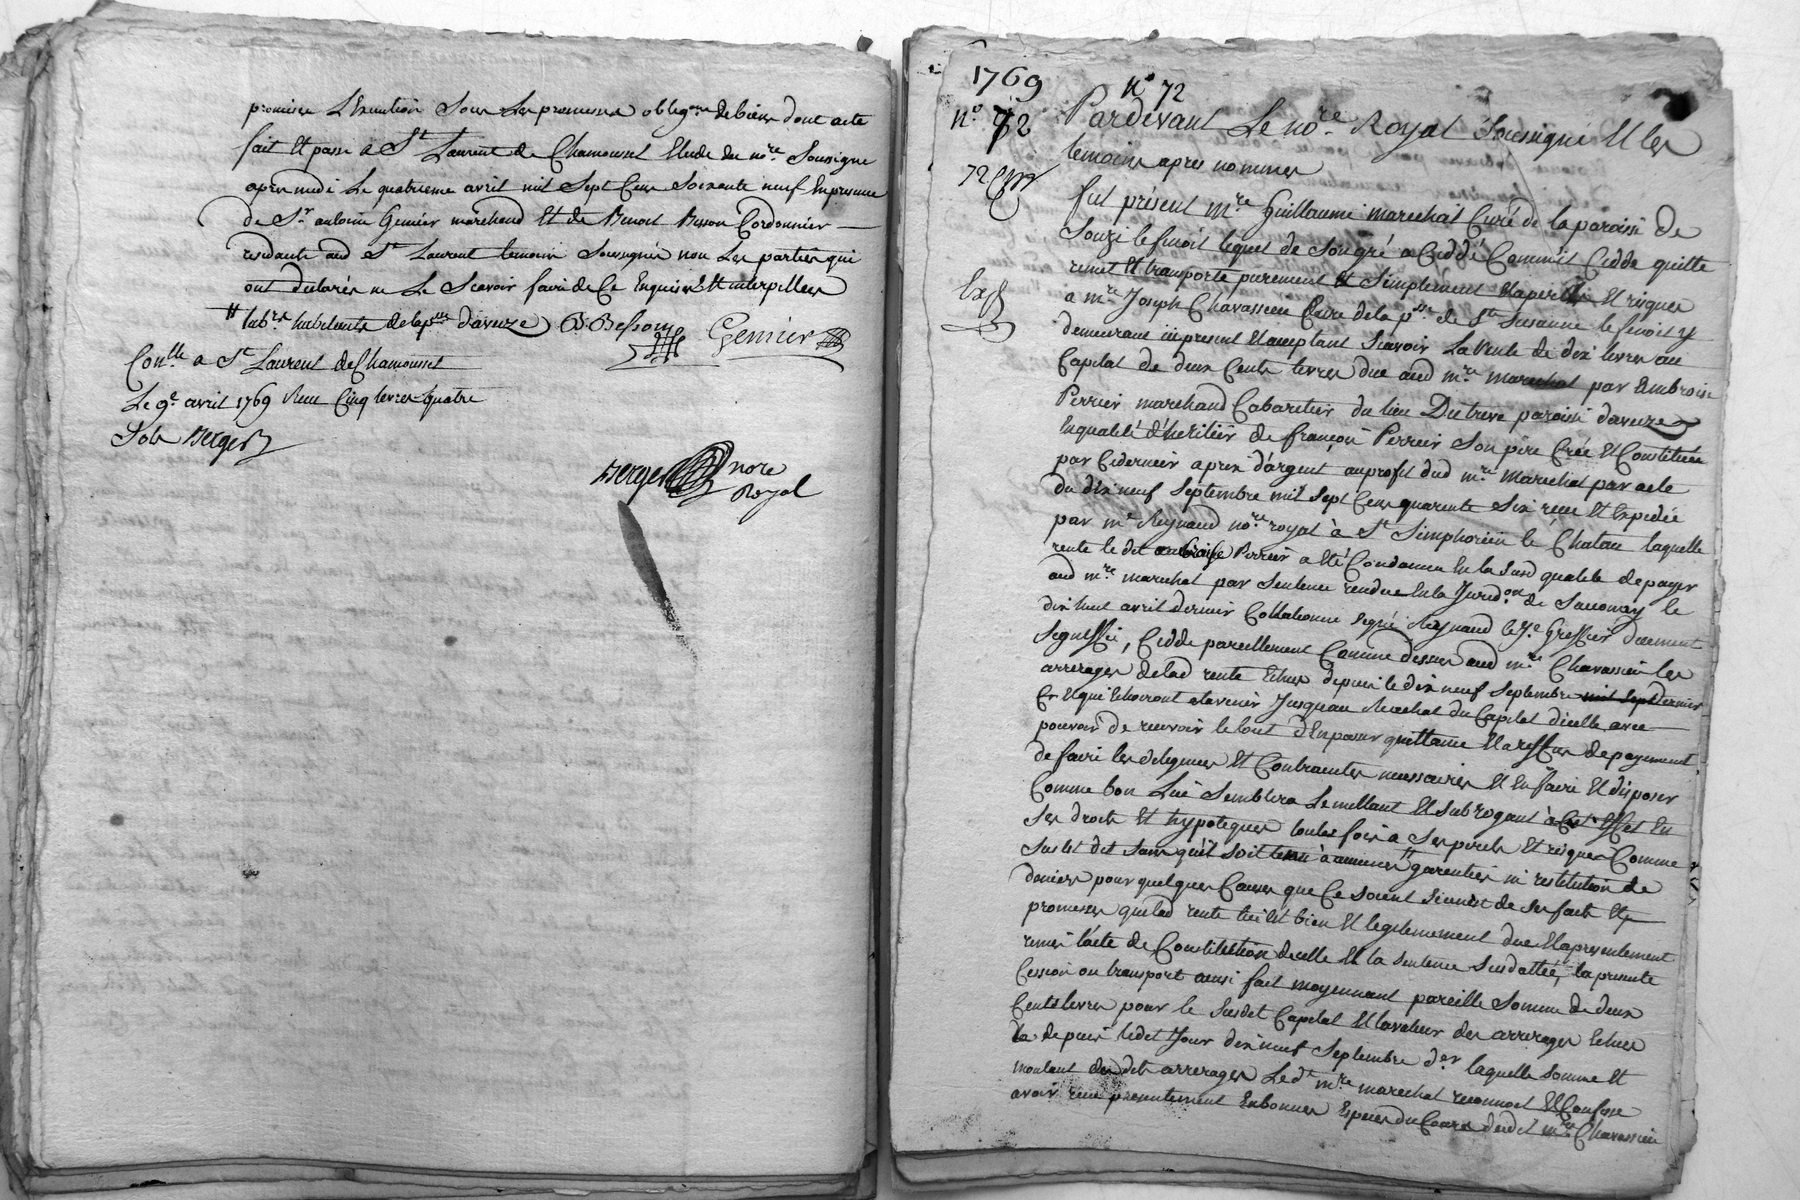 promesse L'Execution Sous Les promesses obligons de biens dont acte
fait Et passé a St Laurent de Chamousset Etude du nore Soussigné
apres midi Le quatrieme avril mil Sept Cens Soixante neuf En presence
de Sr antoine Genier marchand Et de Benoit Besson Cordonnier
residants aud St Laurent temoins Soussignés non Les parties qui
ont declarés ne Le Scavoir faire de Ce Enquises Et interpellées
# habitants de la psse d'aveize B: Besson Genier
Conlle a St Laurent de Chamousset
Le 9e avril 1769 Reçu Cinq livres quatre
Sols Berger
Berger nore
Royal
1769
n° 72
n° 72
72
Exp
Pardevant Le nore Royal Soussigné Et les
temoins apres nommés
fut présent mre Guillaume marechal Curé de la paroisse de
Souzi le finoit lequel de Son gré a Ceddé Comm'il Cedde quitte
remet Et transporte purement Et Simplement Et a perils Et risques
a mre Joseph Chavassieu Curé de la psse de Ste Susanne le finoit y
demeurant ici present Et acceptant Scavoir La rente de dix livres au
Capital de deux Cents livres due aud mre marechal par Embroise
Perrier marchand Cabaretier du lieu Dutreve paroisse d'aveize
En qualité d'heritier de françois Perrier Son pere Créé Et Constituée
par Ce dernier a prix d'argent au profit dud mre Marechal par acte
du dix neuf Septembre mil Sept Cens quarente Six reçu Et Expedié
par me Reynaud nore royal à St Simphorien le Chatau laquelle
rente le dit ambroise Perrier a Eté Condamné En la Susd qualité de payer
aud mre marechal par Sentence rendue En la Juridon de Saconay le
dix huit avril dernier Collationné signé Reynaud Greffier duement
Signiffié, Cedde pareillement Comme dessus aud mre Chavassieu les
arrerages de lad rente Echus depuis le dix neuf Septembre mil sept dernier
Et qui Echoiront a l'avenir Jusquau Rachat du Capital d'icelle avec
pouvoir de recevoir le tout d'En passer quittance Et a reffus de payement
de faire les diligences Et Contraintes necessaires Et En faire Et disposer
Comme bon Lui Semblera Le mettant Et Subrogant à Cet Effet En
Ses droits Et hypoteques toutes fois a Ses perils Et risques Comme
Sus Est dit Sans qu'il soit tenu à aucunes garenties ni restitution de
deniers pour quelques Causes que Ce soient Sinon de Ses faits Et
promesses que lad rente lui Est bien Et legitimement due Et a presentement
remis l'acte de Constitution d'icelle Et la Sentence Susdattée, la presente
Cession ou transport ainsi fait moyennant pareille Somme de deux
Cents livres pour le Susdit Capital Et la valeur des arrerages Echus
depuis ledit Jour dix neuf Septembre der laquelle Somme Et
montant desdits arrerages Le dt mre marechal reconnoit Et Confesse
avoir reçu presentement En bonnes Especes du Cours dudit mre Chavassieu